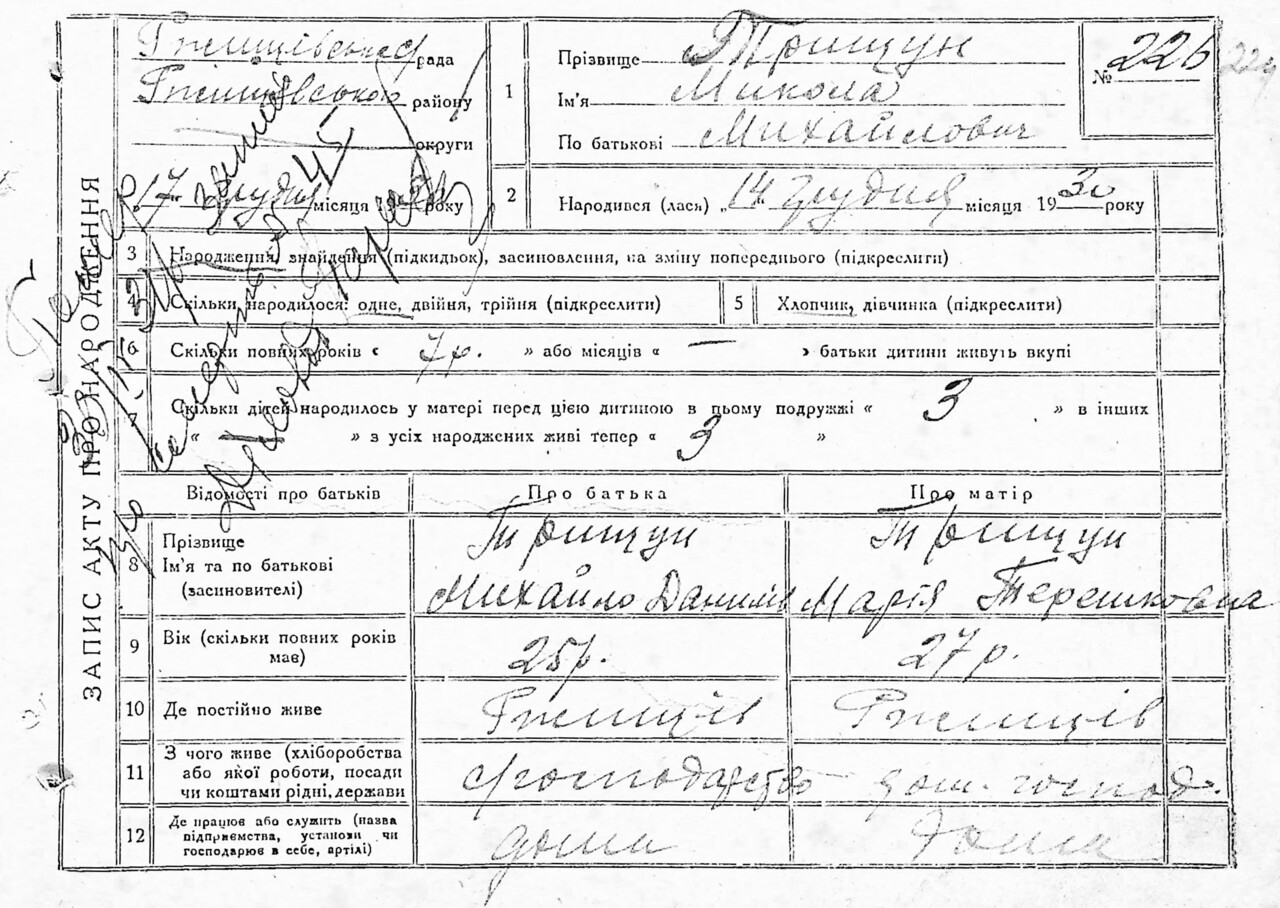 ЗАПИС АКТУ ПРО НАРОДЖЕННЯ
Ржищівська рада
Ржищівського району
округи
17 грудня місяця 1930 року
1
Прізвище Трищун
Ім'я Микола
По батькові Михайлович
№ 226
2
Народився (лася) „14" грудня місяця 1930 року
3 Народження, знайдення (підкидьок), засиновлення, на зміну попереднього (підкреслити)
4 Скільки народилося: одне, двійня, трійня (підкреслити)
5 Хлопчик, дівчинка (підкреслити)
6 Скільки повних років « 7 р. » або місяців « — » батьки дитини живуть вкупі
7 Скільки дітей народилось у матері перед цією дитиною в цьому подружжі « 3 » в інших
« — » з усіх народжених живі тепер « 3 »
Відомості про батьків
Про батька
Про матір
8 Прізвище
Ім'я та по батькові
(засиновителі)
Трищун
Михайло Данилів
Трищун
Марія Терешковна
9 Вік (скільки повних років
мав)
25 р.
27 р.
10 Де постійно живе
Ржищів
Ржищів
11 З чого живе (хліборобства
або якої роботи, посади
чи коштами рідні, держави
господарство
дом. господ.
12 Де працює або служить (назва
підприємства, установи чи
господарює в себе, артілі)
дома
дома